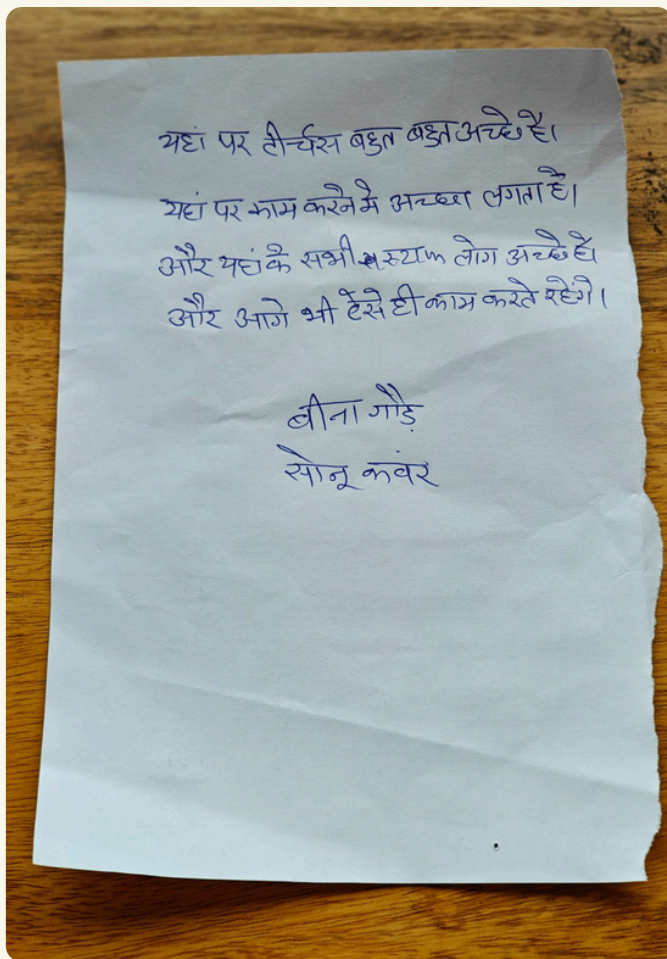 यहां पर टीर्चस बहुत बहुत अच्छे है।
यहां पर काम करने मे अच्छा लगता है।
और यहां के सभी लोग अच्छे है
और आगे भी ऐसे ही काम करते रहेंगे।
बीना गौड़
सोनू कवंर